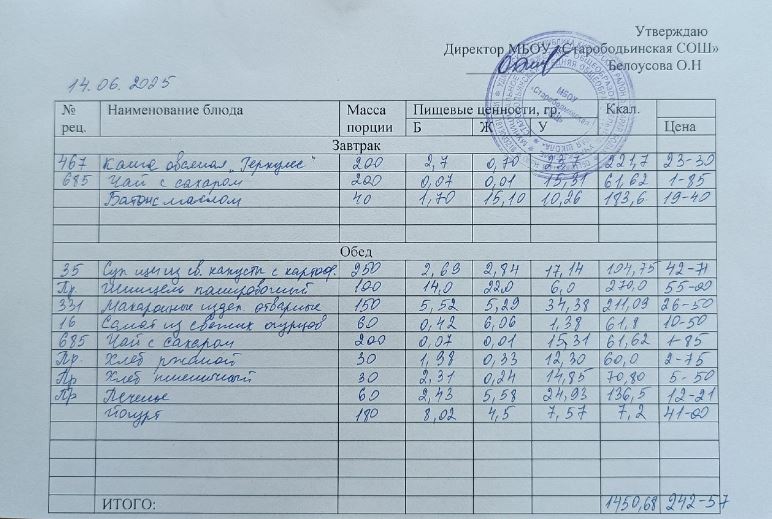 Утверждаю
Директор МБОУ «Старободьинская СОШ»
Белоусова О.Н
14.06.2025
№ рец. Наименование блюда Масса порции Пищевые ценности, гр. Ккал. Цена
Б Ж У
Завтрак
467 Каша овсяная "Геркулес" 200 2,7 0,70 23,7 221,7 23-30
685 Чай с сахаром 200 0,07 0,01 15,31 61,62 1-85
Батон с маслом 40 1,70 15,10 10,26 183,6 19-40
Обед
35 Суп щи из св. капусты с картоф. 250 2,69 2,84 17,14 104,75 42-71
Пр. Шницель панировочный 100 14,0 22,0 6,0 270,0 55-00
331 Макаронные издел. отварные 150 5,52 5,29 34,38 211,09 26-50
16 Салат из свежих огурцов 60 0,42 6,06 1,38 61,8 10-50
685 Чай с сахаром 200 0,07 0,01 15,31 61,62 1-85
Пр. Хлеб ржаной 30 1,98 0,33 12,30 60,0 2-75
Пр Хлеб пшеничный 30 2,31 0,24 14,85 70,80 5-50
Пр Печенье 60 2,43 5,58 24,93 136,5 12-21
Йогурт 180 8,02 4,5 7,57 7,2 41-00
ИТОГО: 1450,68 242-57